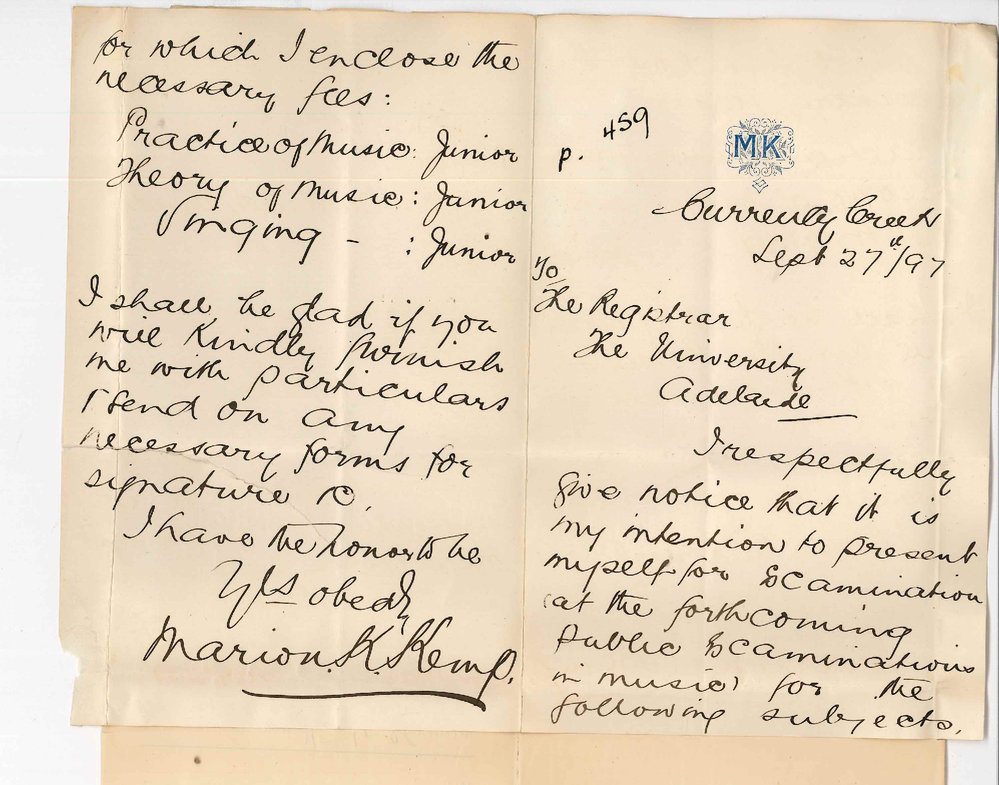 p. 459
MK
Currency Creek
Sept 27th/97
To
The Registrar
The University
Adelaide
I respectfully
give notice that it is
my intention to present
myself for Examination
at the forthcoming
public Examinations
in music, for the
following subjects,
for which I enclose the
necessary fees:
Practice of Music: Junior
Theory of Music: Junior
Singing - : Junior
I shall be glad if you
will Kindly furnish
me with particulars
& send on any
necessary forms for
signature &c.
I have the honor to be
Yrs obedt
Marion. K. Kemp.